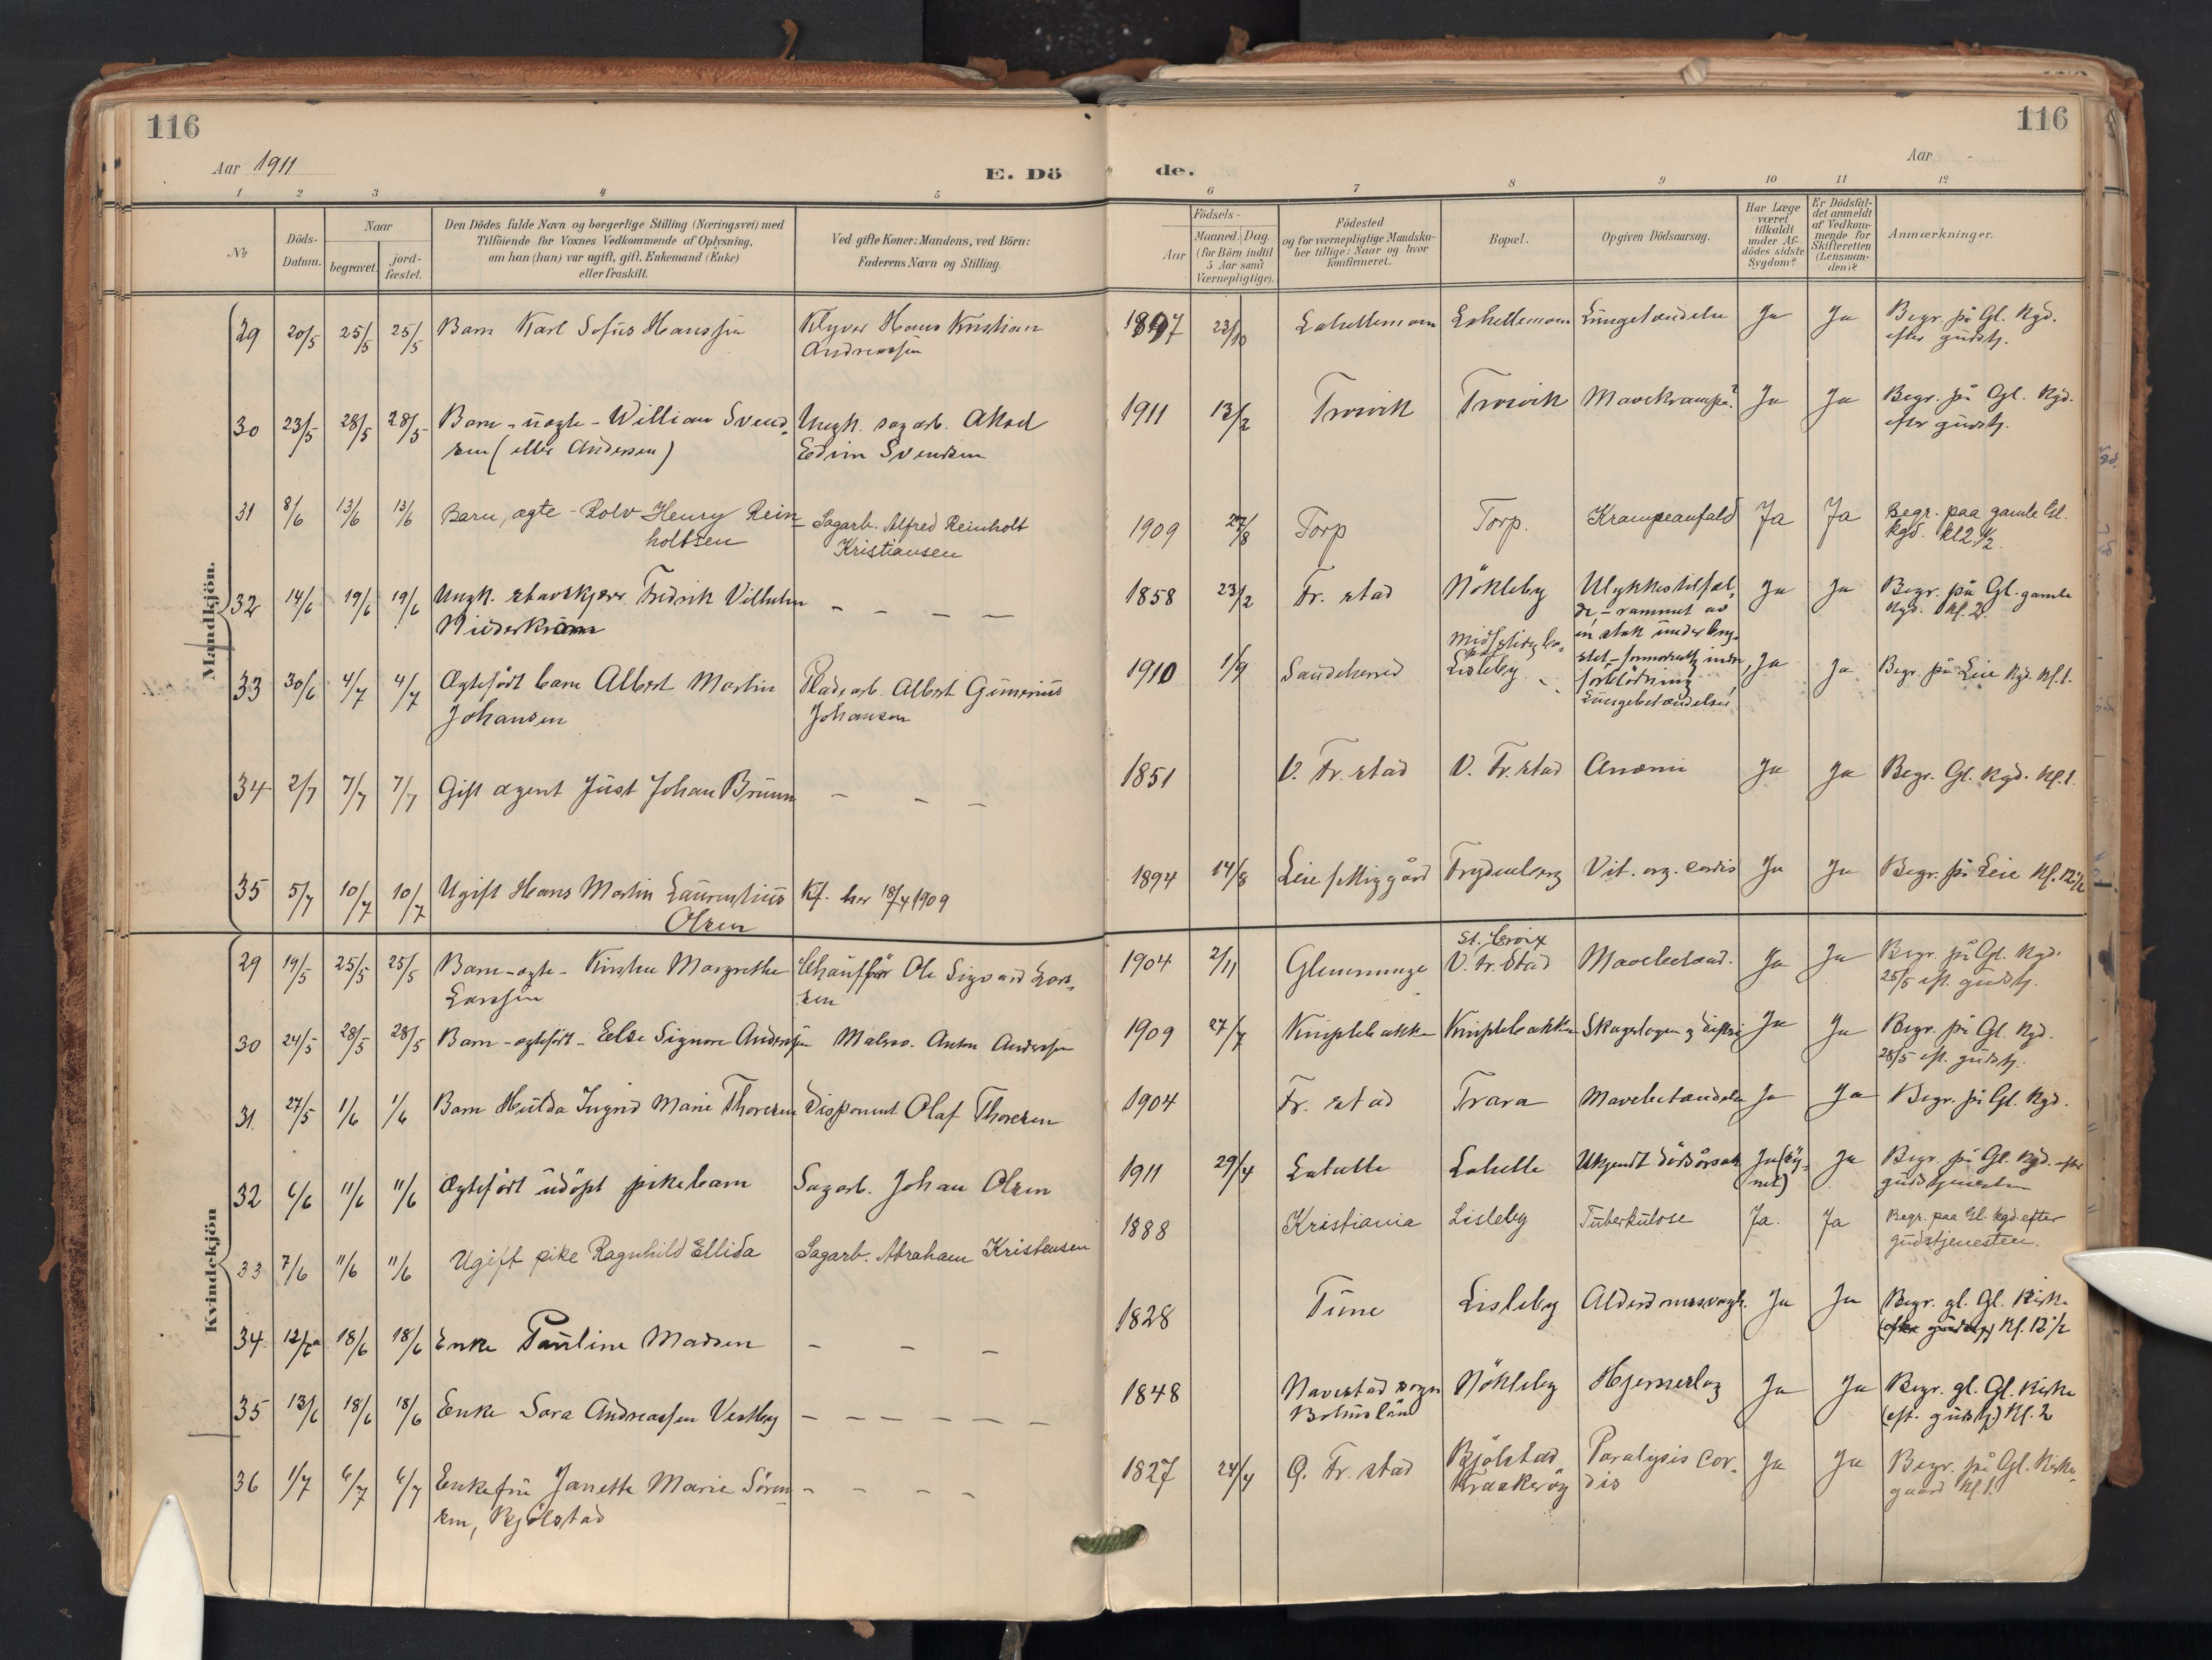 116
Aar 1911
E. Dö
1 2 3 4 5
No
Döds-
Datum.
Naar
begravet.
jord-
fæstet.
Den Dödes fulde Navn og borgerlige Stilling (Næringsvei) med
Tilföiende for Voxnes Vedkommende af Oplysning,
om han (hun) var ugift, gift, Enkemand (Enke)
eller fraskilt.
Ved gifte Koner: Mandens, ved Börn:
Faderens Navn og Stilling.
Mandkjön.
29 20/5 25/5 25/5 Barn Karl Sofus Hanssen Hans Kristian
Andreassen
30 23/5 28/5 28/5 Barn - uægte - William Svend- Ungk. sagarb.
sen (eller Andersen) Edvin Svendsen
31 8/6 13/6 13/6 Barn, ægte - Rolv Henry Rein- Sagarb. Alfred Reinholt
holtsen Kristiansen
32 14/6 19/6 19/6 Ungk. Fredrik Vilhelm - - - -
33 30/6 4/7 4/7 Ægtefödt barn Albert Martin Pladearb. Albert Gunerius
Johansen Johansen
34 2/7 7/7 7/7 Gift agent Just Johan Bruun - - -
35 5/7 10/7 10/7 Ugift Hans Martin Laurentius Kf. her 18/4 1909
Olsen
Kvindekjön
29 19/5 25/5 25/5 Barn - ægte - Kirsten Margrethe Chaufför Ole Sigvard Lars-
Larssen sen
30 24/5 28/5 28/5 Barn - ægtefödt - Else Signore Anderssen Anton Anderssen
31. 27/5 1/6 1/6 Barn Hulda Ingrid Marie Thoresen Disponent Olaf Thoresen
32 6/6 11/6 11/6 Ægtefödt udöpt pikebarn Sagarb. Johan Olsen
33 7/6 11/6 11/6 Ugift pike Ragnhild Ellida Sagarb. Abraham Kristensen
34 12/6 18/6 18/6 Enke Pauline Madsen - - -
35 13/6 18/6 18/6 Enke Sara Andreassen Vestby - - - - - -
36 1/7 6/7 6/7 Enkefru Janette Marie Sören- - - - -
sen, Bjölstad
116
Aar -
de.
6 7 8 9 10 11 12
Födsels-
Aar
Maaned. Dag.
(for Börn indtil
5 Aar samt
Værnepligtige).
Födested
og for værnepligtige Mandska-
ber tillige: Naar og hvor
konfirmeret.
Bopæl.
Opgiven Dödsaarsag.
Har Læge
været
tilkaldt
under Af-
dödes sidste
Sygdom?
Er Dödsfal-
det anmeldt
af Vedkom-
mende for
Skifteretten
(Lensman-
den)?
Anmærkninger.
23/10 Ja Ja Begr. på Gl. Kgd.
efter gudstj.
1911 13/2 Trosvik Trosvik Mavekrampe? Ja Ja Begr. på Gl. Kgd.
efter gudstj.
1909 27/8 Torp Torp. Krampeanfald Ja Ja Begr. paa gamle Gl.
kgd. kl 2 1/2.
1858 23/2 Fr. stad Nökleby Ulykkestilfæl-
de, - rammet av Ja Ja Begr. på Gl. gamle
Kgd. Kl. 2.
1910 1/9 Sandeherred Lisleby Ja Ja Begr. på Leie Kgd. Kl. 1.
forblödning
Lungebetændelse
1851 V. Fr. stad V. Fr. stad Anæmi Ja Ja Begr. Gl. Kgd. Kl. 1.
1894 14/8 Frydenberg Vit. org. cordis Ja Ja Begr. på Leie Kl. 12 1/2
St. Croix
1904 2/11 Glemminge V. Fr. stad Mavebetænd. Ja Ja Begr. på Gl. Kgd.
25/5 eft. gudstj.
1909 27/7 Kniplebakken Kniplebakken Ja Ja Begr. på Gl. Kgd.
28/5 eft. gudstj.
1904 Fr. stad Trara Mavebetændelse Ja Ja Begr. på Gl. Kgd.
1911 29/4 Labella Labella Ukjendt dödsårsak Ja Ja Begr. på Gl. Kgd.
gudstjenesten
1888 Kristiania Lisleby Tuberkulose Ja. Ja Begr. paa Gl. kgd. efter
gudstjenesten.
1828 Tune Lisleby Alderdomssvagh. Ja Ja Begr. gl. Gl. Kirke
(efter gudstj) Kl. 12 1/2
1848 Navestad sogn Nökleby Hjerneslag Ja Ja Begr. gl. Gl. Kirke
Bohuslän (eft. gudstj.) Kl. 2
1827 24/4 G. Fr. stad Bjölstad Paralysis cor- Ja Ja Begr. på Gl. Kirke-
Kraakeröy dis gaard Kl. 1.